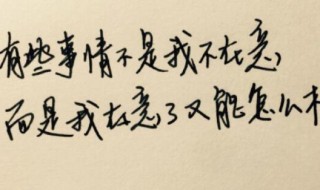 有些事情不是我不在意，
而是我在意了又能怎么